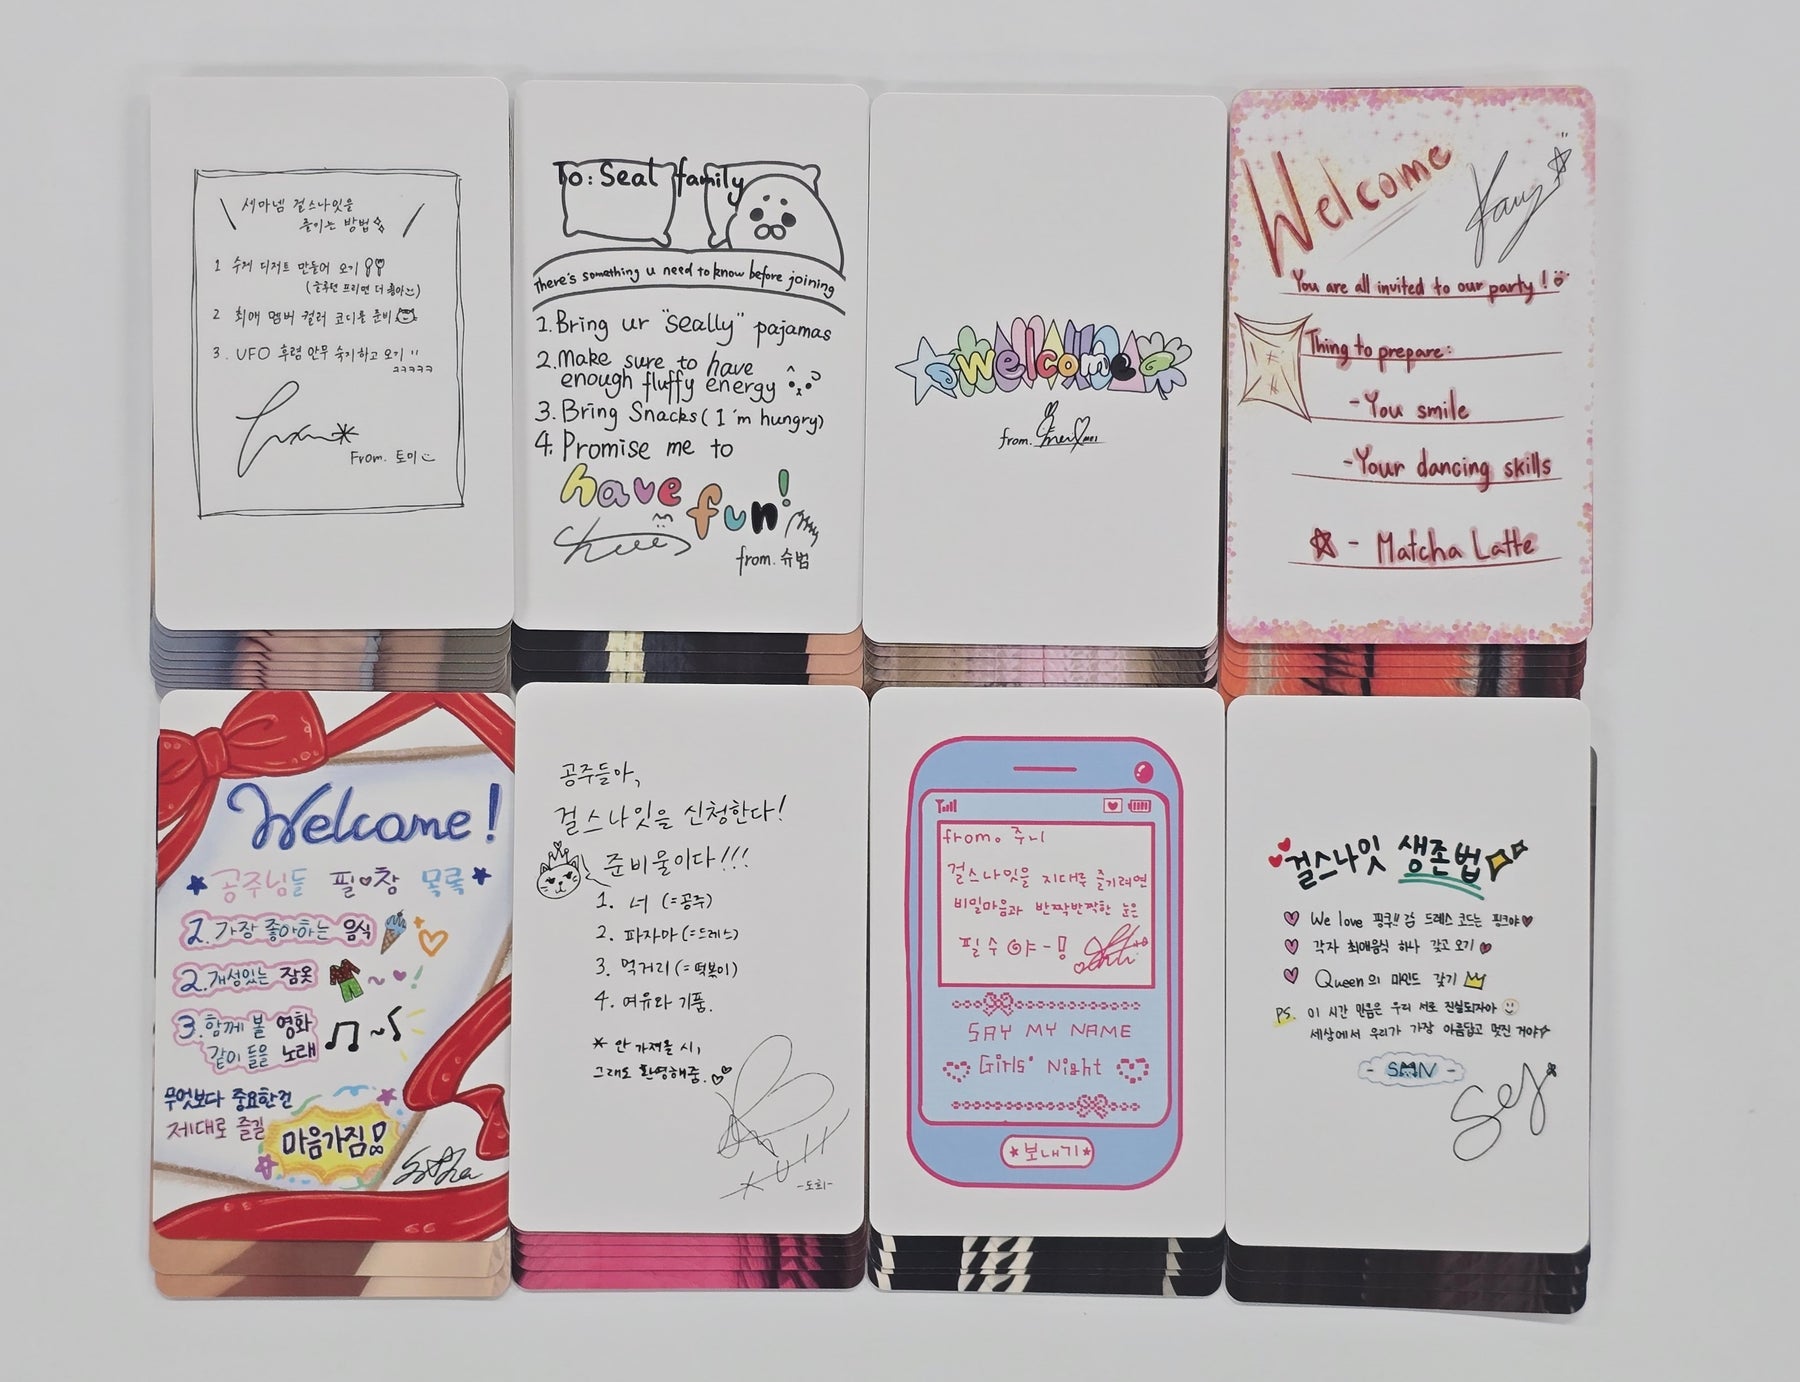 세마넴 걸스나잇을
즐이는 방법
1 수제 디저트 만들어 오기
(글루텐 프리면 더 좋아)
2 최애 멤버 컬러 코디를 준비
3. UFO 후렴 안무 숙지하고 오기
ㅋㅋㅋㅋㅋ
From. 토미
To: Seal family
There's something u need to know before joining
1. Bring ur "Seally" pajamas
2. Make sure to have
enough fluffy energy
3. Bring Snacks (I'm hungry)
4. Promise me to
have fun!
from. 슈범
Welcome
from.
Welcome
You are all invited to our party!
Thing to prepare:
- You smile
- Your dancing skills
- Matcha Latte
Welcome!
공주님들 필♥참 목록
1. 가장 좋아하는 음식
2. 개성있는 잠옷
3. 함께 볼 영화
같이 들을 노래
무엇보다 중요한건
제대로 즐길
마음가짐!
공주들아,
걸스나잇을 신청한다!
준비물이다!!!
1. 너 (=공주)
2. 파자마 (=드레스)
3. 먹거리 (=떡볶이)
4. 여유와 기품.
* 안 가져올 시,
그래도 환영해줌.
-도희-
from. 주니
걸스나잇을 지대루 즐기려면
비밀마음과 반짝반짝한 눈은
필수야-!
SAY MY NAME
Girls' Night
보내기
걸스나잇 생존법
We love 핑쿠!! 감 드레스코드는 핑크야
각자 최애음식 하나 갖고 오기
Queen의 마인드 갖기
PS. 이 시간 만큼은 우리 서로 진실되자아
세상에서 우리가 가장 아름답고 멋진 거야
- SMN -